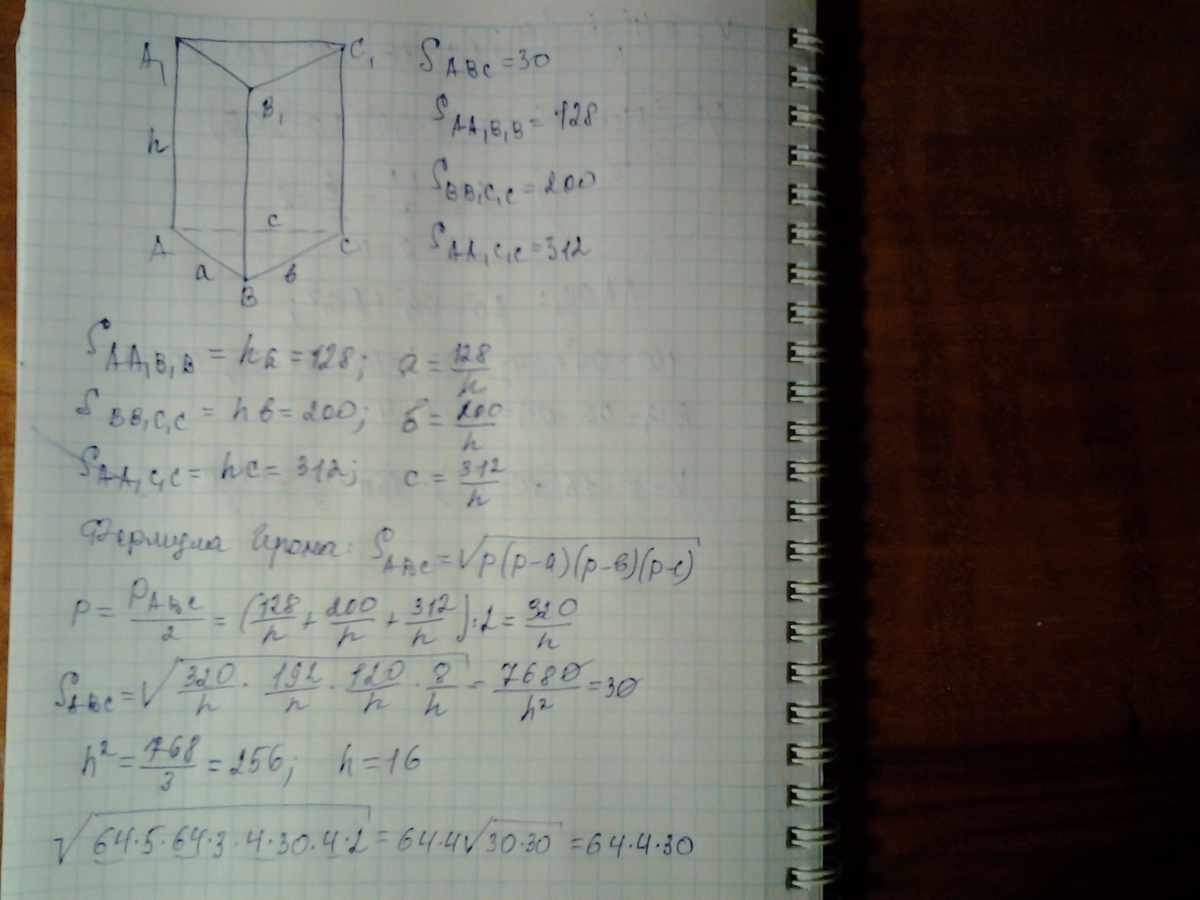 A₁ C₁ S_ABC = 30
B₁ S_AA₁B₁B = 128
h S_BB₁C₁C = 200
c S_AA₁C₁C = 312
A C
a в
B
S_AA₁B₁B = ha = 128; a = 128/h
S_BB₁C₁C = hв = 200; в = 200/h
S_AA₁C₁C = hc = 312; c = 312/h
Формула Герона: S_ABC = √(p(p-a)(p-в)(p-c))
p = P_ABC/2 = (128/h + 200/h + 312/h) : 2 = 320/h
S_ABC = √(320/h · 192/h · 120/h · 8/h) = 7680/h² = 30
h² = 768/3 = 256; h = 16
√(64·5·64·3·4·30·4·2) = 64·4√(30·30) = 64·4·30